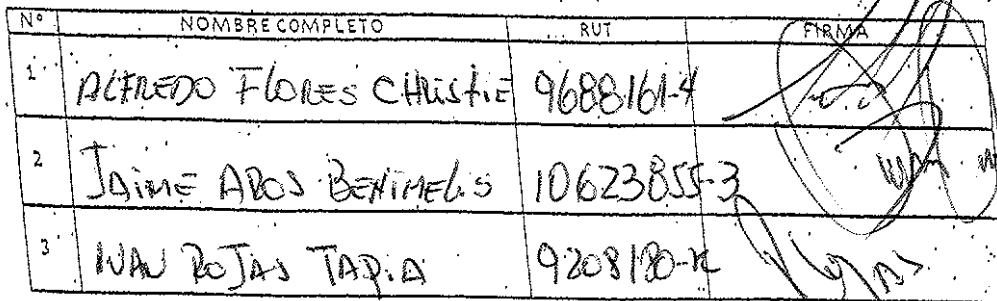 Nº NOMBRE COMPLETO RUT FIRMA
1 ALFREDO FLORES CHRISTIE 9688161-4
2 JAIME ABOS BENIMELIS 10623855-3
3 IVAN ROJAS TAPIA 9208180-K